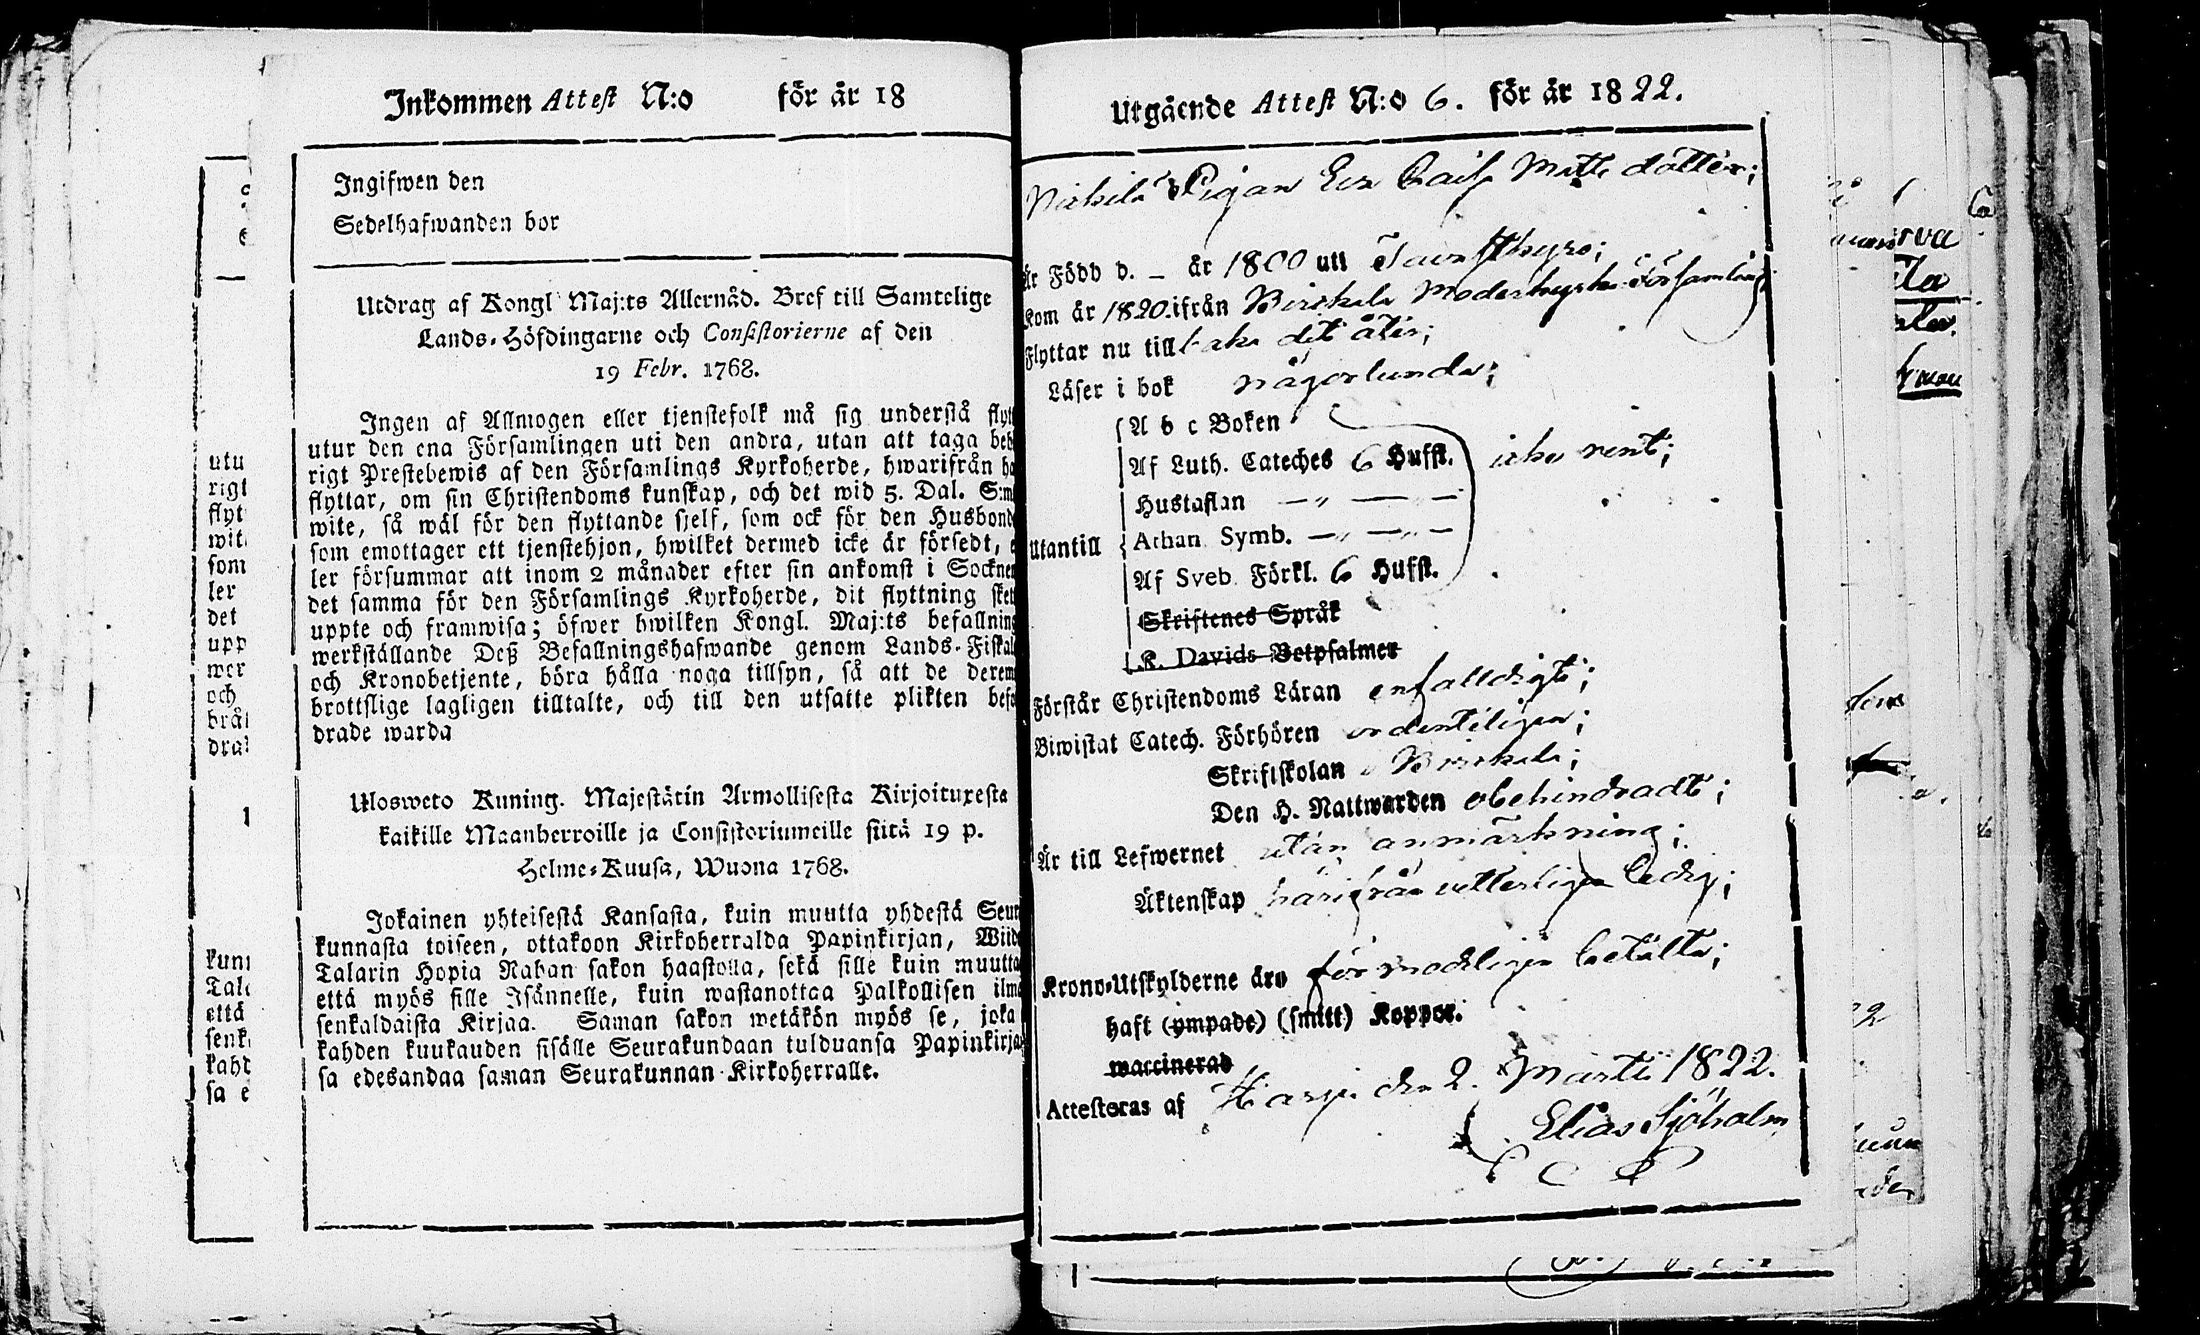 Inkommen Attest N:o för år 18
Ingifwen den
Sedelhafwanden bor
Utdrag af Kongl Maj:ts Allernåd. Bref till Samtelige
Lands-Höfdingarne och Consistorierne af den
19 Febr. 1768.
Ingen af Allmogen eller tjenstefolk må sig understå flyt
utur den ena Församlingen uti den andra, utan att taga beh
rigt Prestebewis af den Församlings Kyrkoherde, hwarifrån ha
flyttar, om sin Christendoms kunskap, och det wid 5. Dal. S:m
wite, så wäl för den flyttande sjelf, som ock för den Husbond
som emottager ett tjenstehjon, hwilket dermed icke är försedt, e
ler försummar att inom 2 månader efter sin ankomst i Socknen
det samma för den Församlings Kyrkoherde, dit flyttning sket
uppte och framwisa; öfwer hwilken Kongl. Maj:ts befallning
werkställande Deß Befallningshafwande genom Lands-Fiskal
och Kronobetjente, böra hålla noga tillsyn, så att de derem
brottslige lagligen tilltalte, och till den utsatte plikten befo
drade warda
Ulosweto Kuning. Majestätin Armollisesta Kirjoituxesta
kaikille Maanherroille ja Consistoriumeille siitä 19 p.
Helme-Kuusa, Wuona 1768.
Jokainen yhteisestä Kansasta, kuin muutta yhdestä Seur
kunnasta toiseen, ottakoon Kirkoherralda Papinkirjan, Wiid
Talarin Hopia Rahan sakon haastolla, sekä sille kuin muutta
että myös sille Isännelle, kuin wastanottaa Palkollisen ilma
senkaldaista Kirjaa. Saman sakon wetäkön myös se, joka
kahden kuukauden sisälle Seurakundaan tulduansa Papinkirja
sa edesandaa saman Seurakunnan Kirkoherralle.
Utgående Attest N:o 6. för år 1822.
Pigan Matts dotter;
Är Född d. – år 1800 uti Tavastkyro;
Kom år 1820 ifrån Birkala Moderkyrko Församling;
Flyttar nu tillbaka dit åter;
Läser i bok någorlunda;
A b c Boken
Af Luth. Cateches 6 Hufst. icke rent;
Hustaflan — „ — —
Utantill Athan Symb. — „ — „ —
Af Sveb Förkl. 6 Hufst.
Skriftenes Språk
K. Davids Botpsalmer
Förstår Christendoms Läran enfalldigt;
Biwistat Catech. Förhören ordenteligen;
Skriftskolan i Birkala;
Den H. Nattwarden obehindradt;
Är till Lefwernet utan anmärkning;
Äktenskap härifrån vetterligen ledig;
Krono-Utskylderne äro förmodligen betalte;
haft (ympade) (smitt) Koppor.
waccinerad
Attesteras af Harju den 2. Martii 1822.
Elias Sjöholm